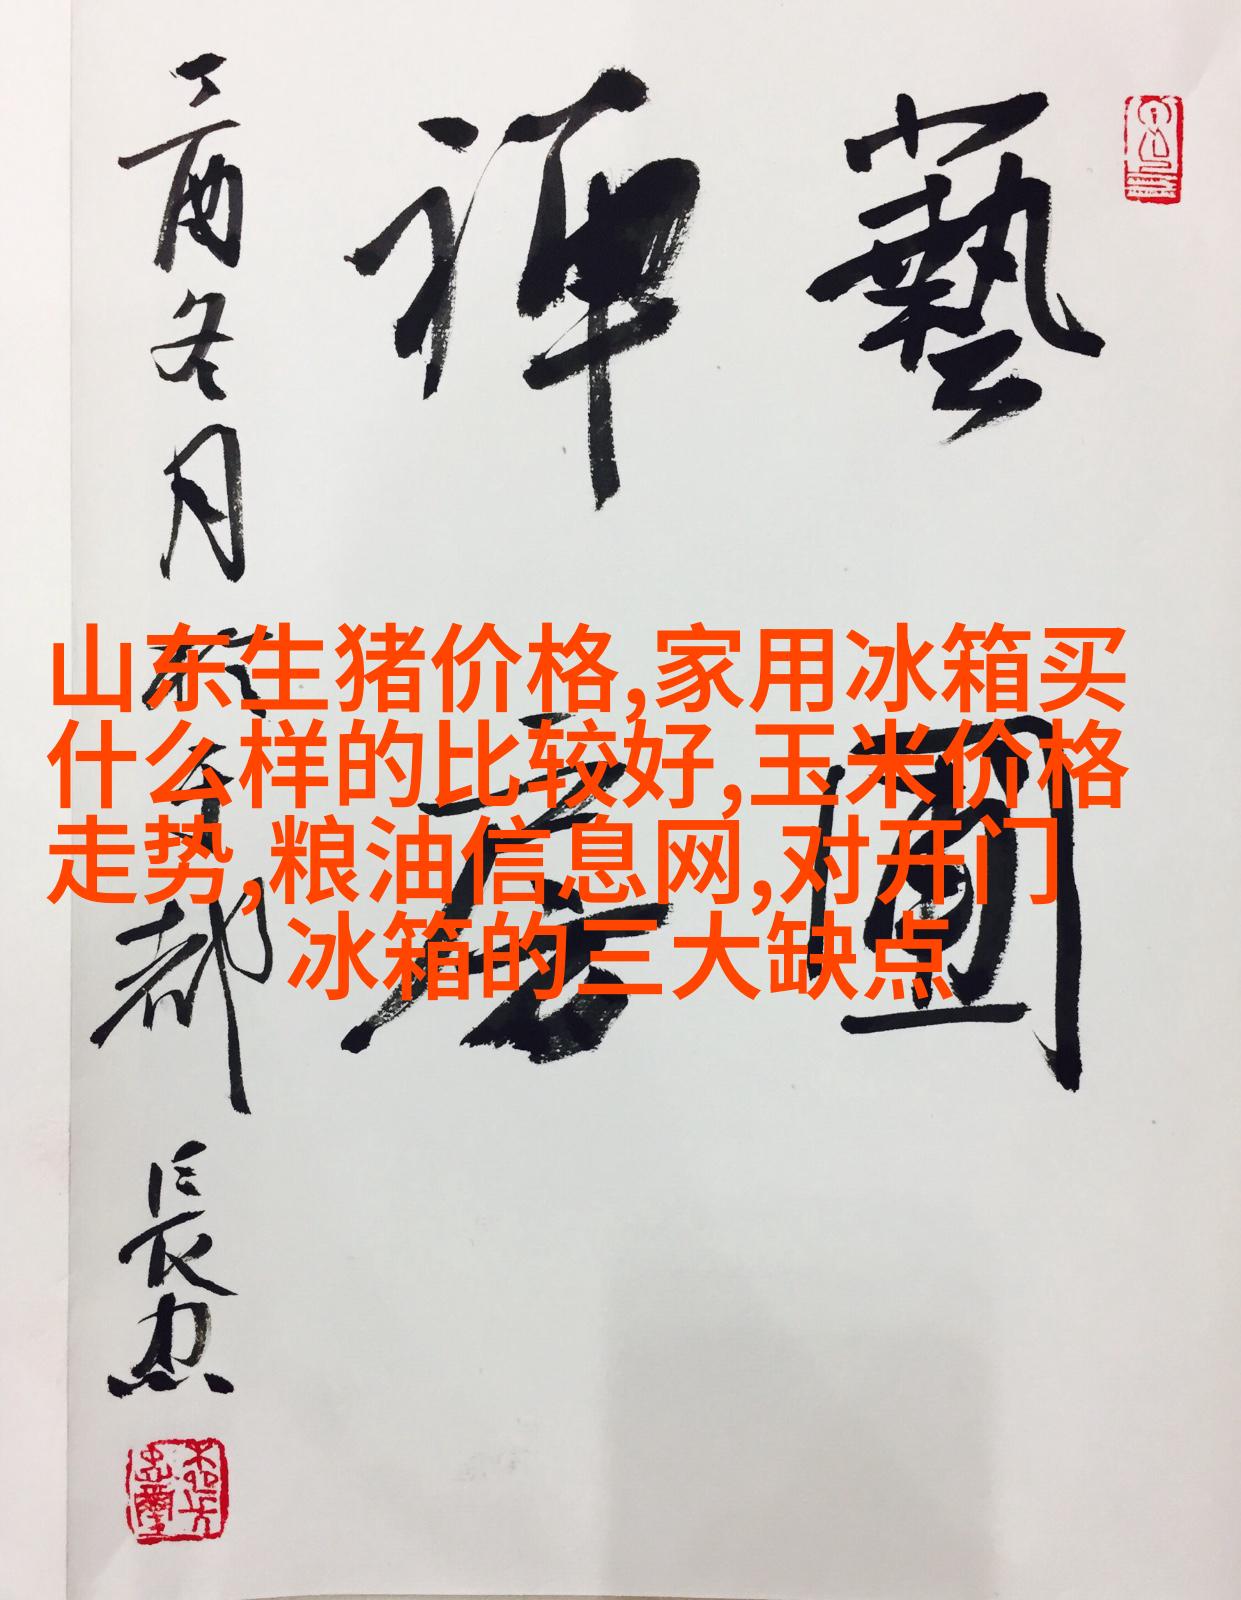 山东生猪价格,家用冰箱买
什么样的比较好,玉米价格
走势,粮油信息网,对开门
冰箱的三大缺点
藝
禅
丁酉冬月
都
長忠